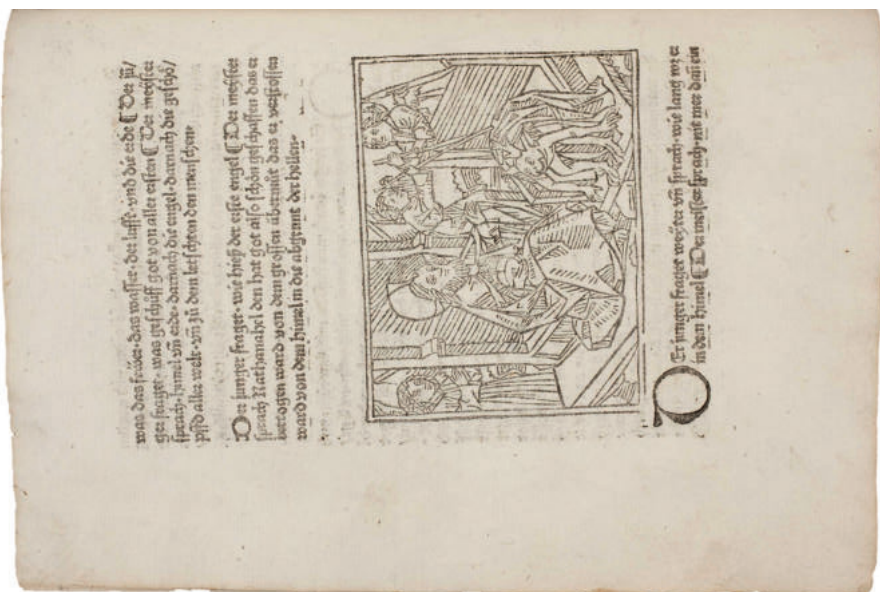 was das feüer·das wasser·der lufft·vnd die erde ⸿ Der jü/
ger fraget·was geschüff got von aller ersten ⸿ Der meyster
sprach·himel vñ erde·darnach die engel·darnach die geschö/
pffd aller welt·vñ zů dem letschten den menschen·
Der junger fraget·wie hieß der erste engel ⸿ Der meyster
sprach Nathanahel den hat got also schön geschaffen das er
bettogen ward von dem grossen übermůt das er verstossen
ward von dem himel in die abgrunt der hellen·
DEr junger fraget weyter vñ sprach·wie lang wz er
in dem himel ⸿ Der meister sprach·nit mer dañ ein